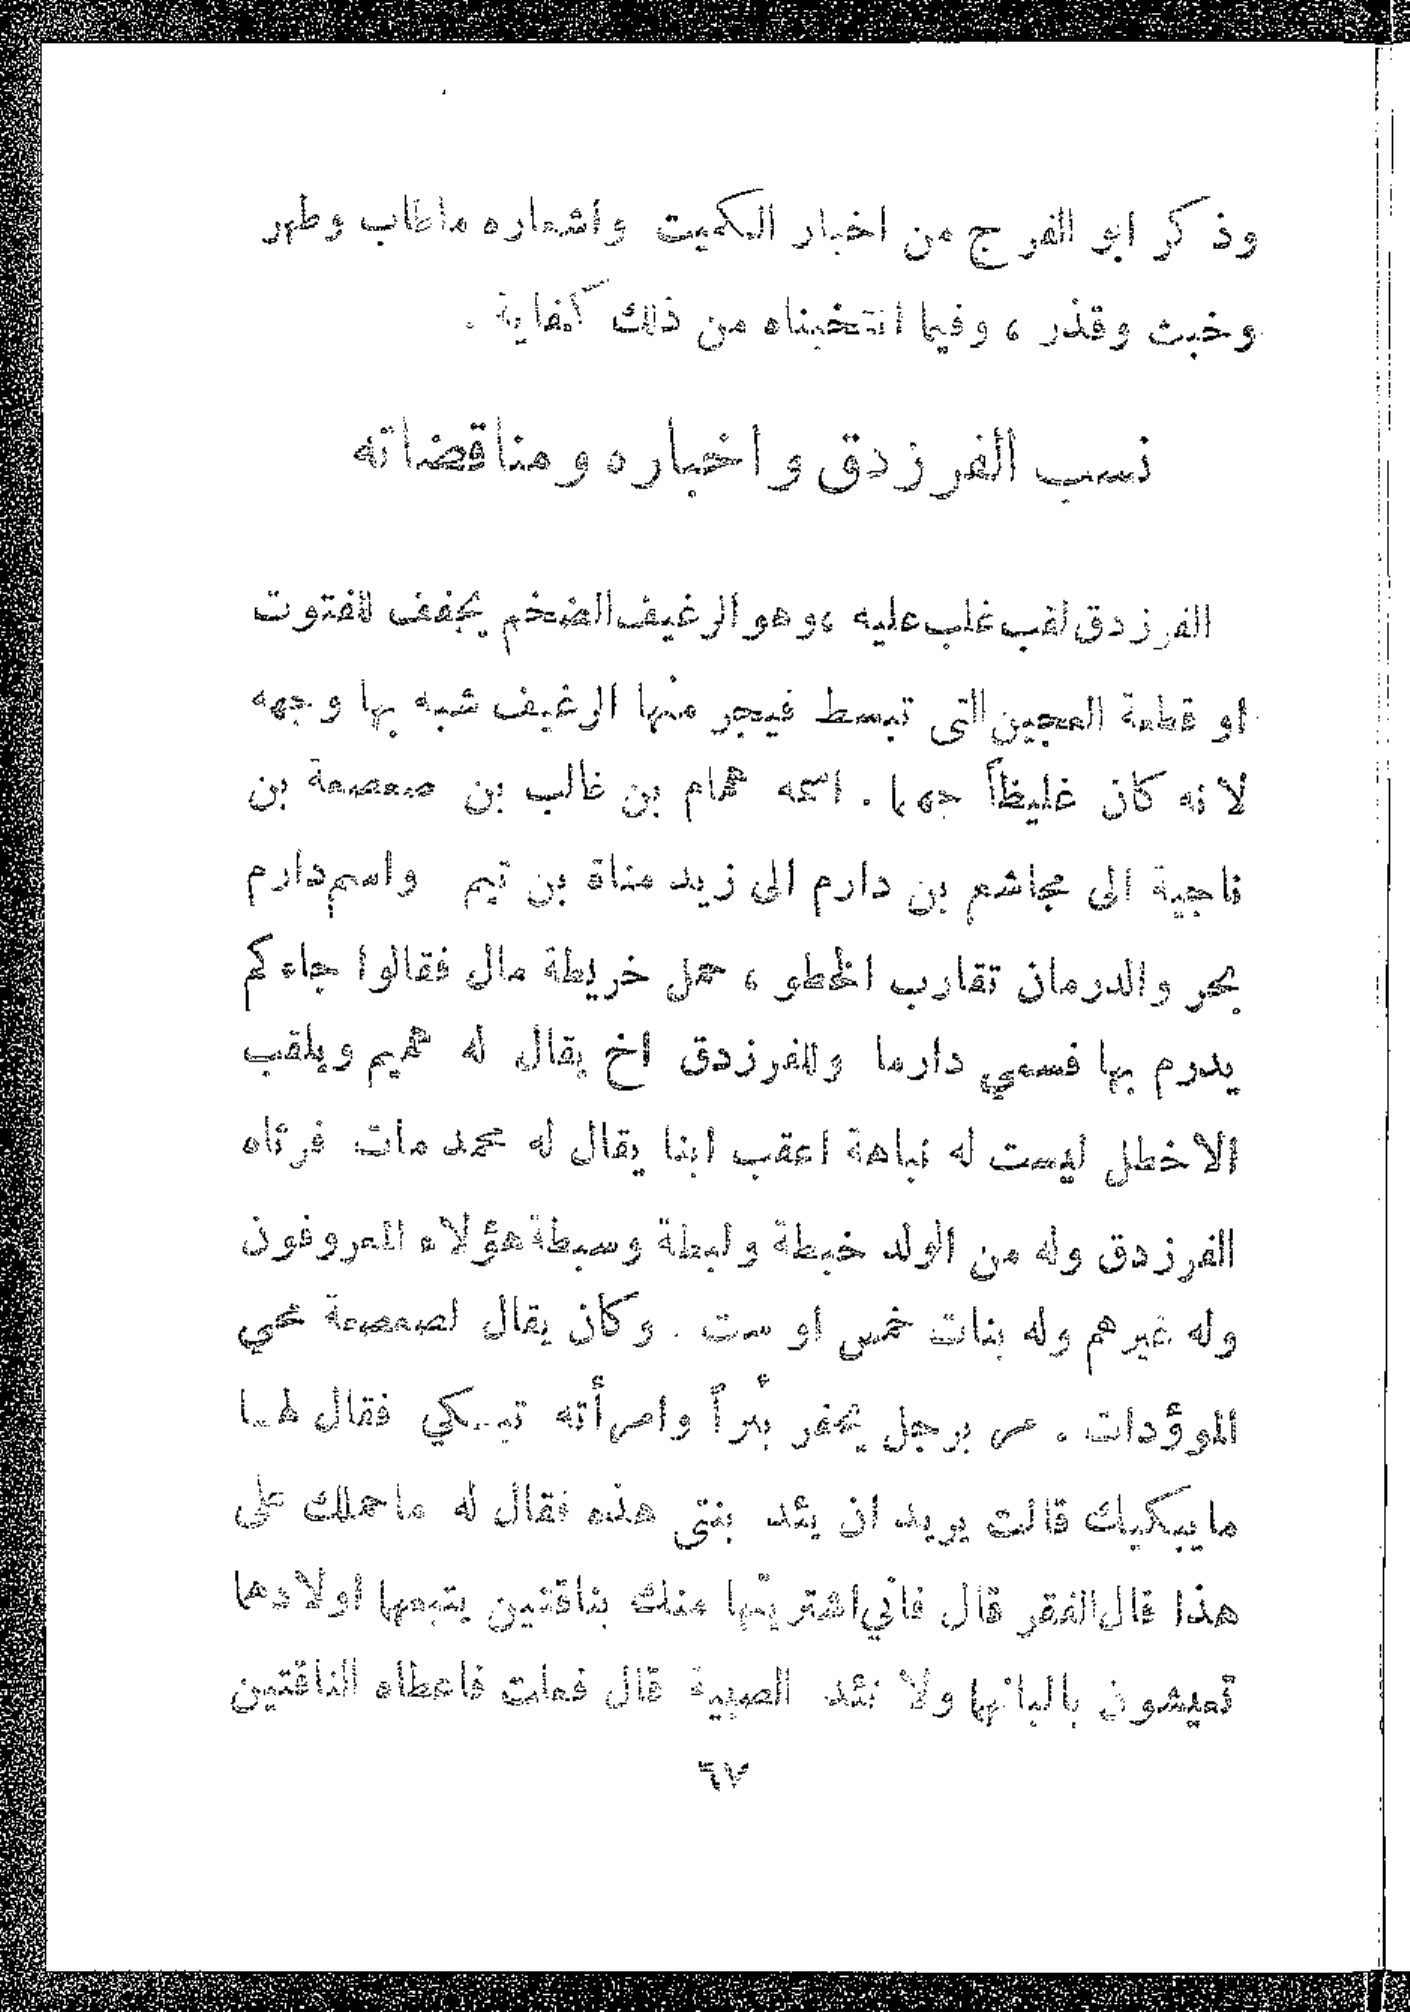 وذكر ابو الفرج من اخبار الكميت واشعاره ماطاب وطهر
وخبث وقذر ، وفيما انتخبناه من ذلك كفاية .
نسب الفرزدق واخباره ومناقضاته
الفرزدق لقب غلب عليه ، وهو الرغيف الضخم يجفف للفتوت
او قطعة العجين التي تبسط فيجر منها الرغيف شبه بها وجهه
لانه كان غليظاً جهما . اسمه همام بن غالب بن صعصعة بن
ناجية الى مجاشع بن دارم الى زيد مناة بن تيم واسم دارم
بحر والدرمان تقارب الخطو ، حمل خريطة مال فقالوا جاءكم
يدرم بها فسمي دارما وللفرزدق اخ يقال له هميم ويلقب
الاخطل ليست له نباهة اعقب ابنا يقال له محمد مات فرثاه
الفرزدق وله من الولد خبطة ولبطة وسبطة هؤلاء المعروفون
وله غيرهم وله بنات خمس او ست . وكان يقال لصعصعة محيي
الموؤدات . مر برجل يحفر بئراً وامرأته تبكي فقال لها
مايبكيك قالت يريد ان يئد بنتي هذه فقال له ماحملك على
هذا قال الفقر قال فاني اشتريتها منك بناقتين يتبعها اولادهما
تعيشون بالبانها ولا تئد الصبية قال فعلت فاعطاه الناقتين
٦٧